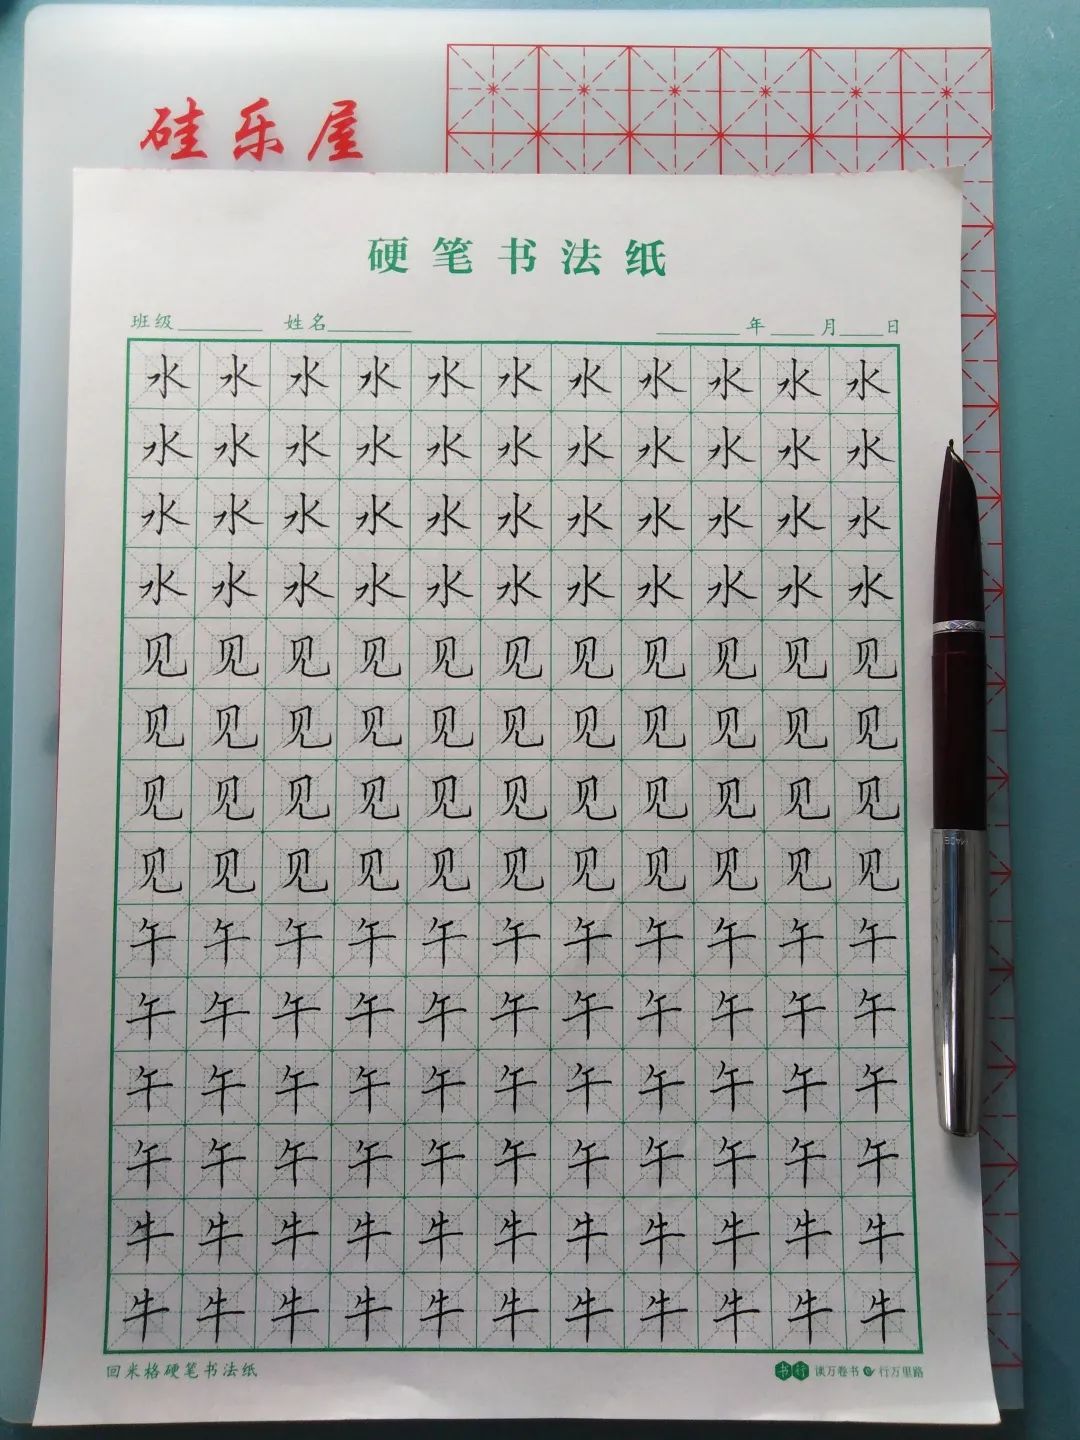 硅乐屋
硬笔书法纸
班级 姓名 年 月 日
水水水水水水水水水水水
水水水水水水水水水水水
水水水水水水水水水水水
水水水水水水水水水水水
见见见见见见见见见见见
见见见见见见见见见见见
见见见见见见见见见见见
见见见见见见见见见见见
午午午午午午午午午午午
午午午午午午午午午午午
午午午午午午午午午午午
午午午午午午午午午午午
牛牛牛牛牛牛牛牛牛牛牛
牛牛牛牛牛牛牛牛牛牛牛
回米格硬笔书法纸 书行 读万卷书 行万里路